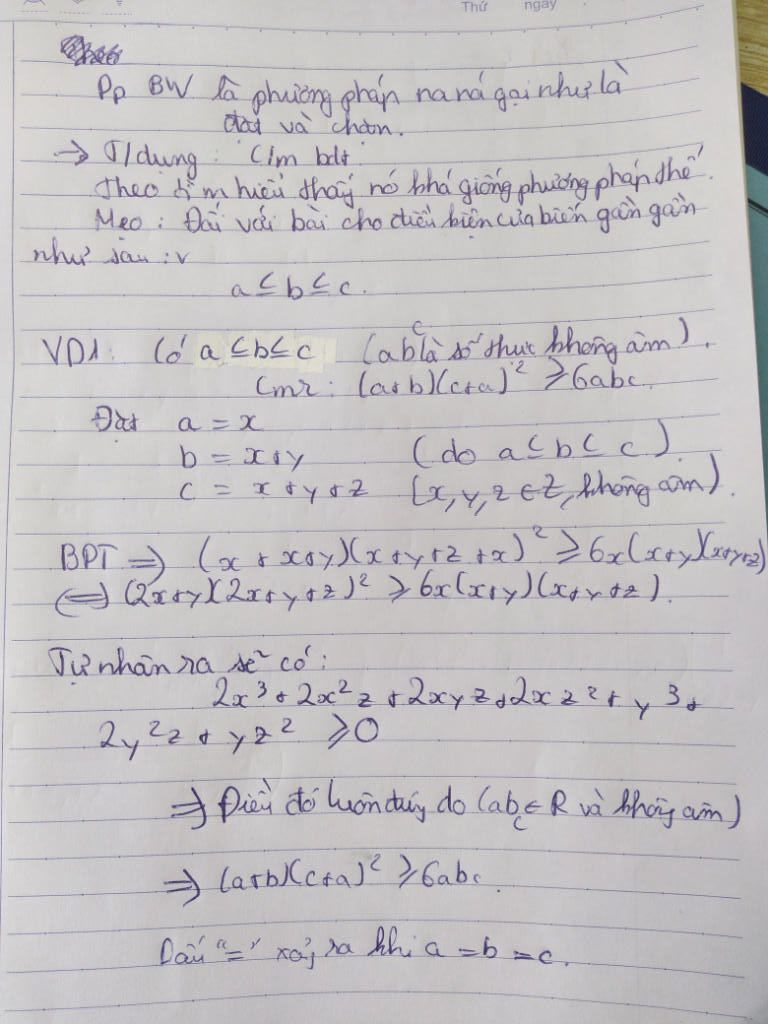 Thứ ngày
Pp BW là phương pháp na ná gại như là
đặt và chọn.
→ T/dụng : C/m bđt
Theo tìm hiểu thấy nó khá giống phương pháp thế.
Mẹo : Đối với bài cho điều kiện của biến gần gần
như sau :v
a ≤ b ≤ c.
VD1: Có a ≤ b ≤ c (abc là số thực không âm).
Cmr : (a+b)(c+a)² ≥ 6abc.
Đặt a = x
b = x+y (do a ≤ b ≤ c).
c = x+y+z (x,y,z ∈ Z, không âm).
BPT ⇒ (x + x+y)(x+y+z+x)² ≥ 6x(x+y)(x+y+z)
(⇔) (2x+y)(2x+y+z)² ≥ 6x(x+y)(x+y+z).
Tự nhân ra sẽ có:
2x³ + 2x²z + 2xyz + 2xz² + y³ +
2y²z + yz² ≥ 0
⇒ Điều đó luôn đúng do (abc ∈ R và không âm)
⇒ (a+b)(c+a)² ≥ 6abc.
Dấu "=" xảy ra khi a = b = c.